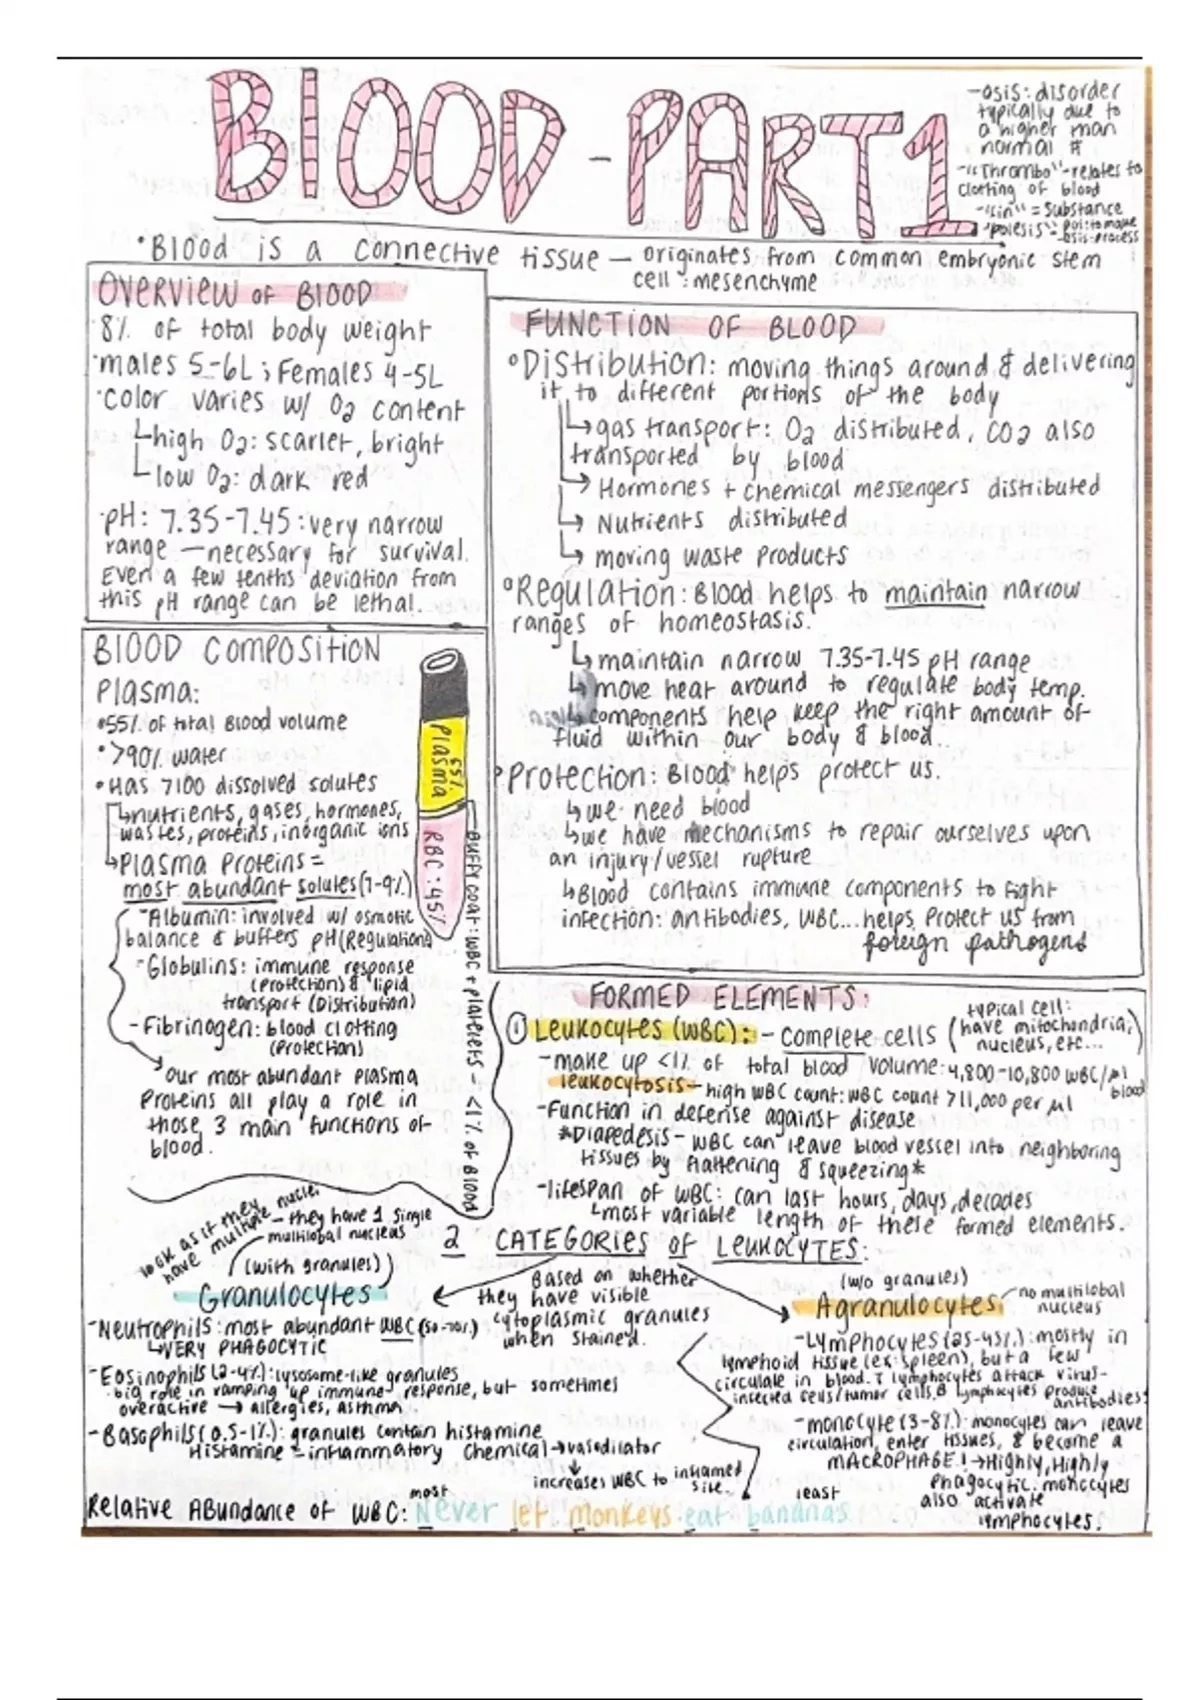 BLOOD - PART 1
-osis: disorder
typically due to
a higher than
normal #
-"Thrombo"-relates to
clotting of blood
-"in" = substance
-"poiesis": poi: to make
-esis-process
•Blood is a connective tissue — originates from common embryonic stem
cell: mesenchyme
OVERVIEW OF BLOOD
8% of total body weight
•males 5-6L; Females 4-5L
•color varies w/ O2 content
↳high O2: scarlet, bright
↳low O2: dark red
•pH: 7.35-7.45: very narrow
range — necessary for survival.
Even a few tenths deviation from
this pH range can be lethal.
FUNCTION OF BLOOD
•Distribution: moving things around & delivering
it to different portions of the body
↳gas transport: O2 distributed, CO2 also
transported by blood
↳Hormones + chemical messengers distributed
↳Nutrients distributed
↳moving waste products
•Regulation: Blood helps to maintain narrow
ranges of homeostasis.
↳maintain narrow 7.35-7.45 pH range
↳move heat around to regulate body temp.
↳components help keep the right amount of
fluid within our body & blood.
•Protection: Blood helps protect us.
↳we need blood
↳we have mechanisms to repair ourselves upon
an injury/vessel rupture
↳Blood contains immune components to fight
infection: antibodies, WBC...helps protect us from
foreign pathogens
BLOOD COMPOSITION
Plasma:
•55% of total Blood volume
•>90% water
•Has 7100 dissolved solutes
↳nutrients, gases, hormones,
wastes, proteins, inorganic ions
↳Plasma Proteins =
most abundant solutes (7-9%)
-Albumin: involved w/ osmotic
balance & buffers pH (Regulation)
-Globulins: immune response
(Protection) & lipid
transport (Distribution)
-Fibrinogen: blood clotting
(Protection)
→our most abundant plasma
Proteins all play a role in
those 3 main functions of
blood.
Plasma 55%
RBC: 45%
Buffy coat: WBC + platelets - <1% of Blood
FORMED ELEMENTS:
① Leukocytes (WBC): - complete cells
typical cell:
(have mitochondria,
nucleus, etc...)
-make up <1% of total blood volume: 4,800-10,800 WBC/µl
blood
leukocytosis - high WBC count: WBC count >11,000 per µl
-Function in defense against disease
*Diapedesis - WBC can leave blood vessel into neighboring
tissues by flattening & squeezing*
-lifespan of WBC: can last hours, days, decades
↳most variable length of these formed elements.
2 CATEGORIES OF LEUKOCYTES:
Based on whether
they have visible
cytoplasmic granules
when stained.
look as if they
have multiple nuclei
-they have 1 single
multilobal nucleus
(with granules)
Granulocytes
-Neutrophils: most abundant WBC (50-70%)
↳VERY PHAGOCYTIC
-Eosinophils (2-4%): lysosome-like granules
big role in ramping up immune response, but sometimes
overactive → allergies, asthma
-Basophils (0.5-1%): granules contain histamine
Histamine - inflammatory chemical → vasodilator
↓
increases WBC to inflamed
site.
(w/o granules)
Agranulocytes
no multilobal
nucleus
-Lymphocytes (25-45%): mostly in
lymphoid tissue (ex: spleen), but a few
circulate in blood. T lymphocytes attack virus-
infected cells/tumor cells. B lymphocytes produce
antibodies
-monocyte (3-8%): monocytes can leave
circulation, enter tissues, & become a
MACROPHAGE! → Highly, Highly
phagocytic. monocytes
also activate
lymphocytes.
most
least
Relative Abundance of WBC: Never let monkeys eat bananas